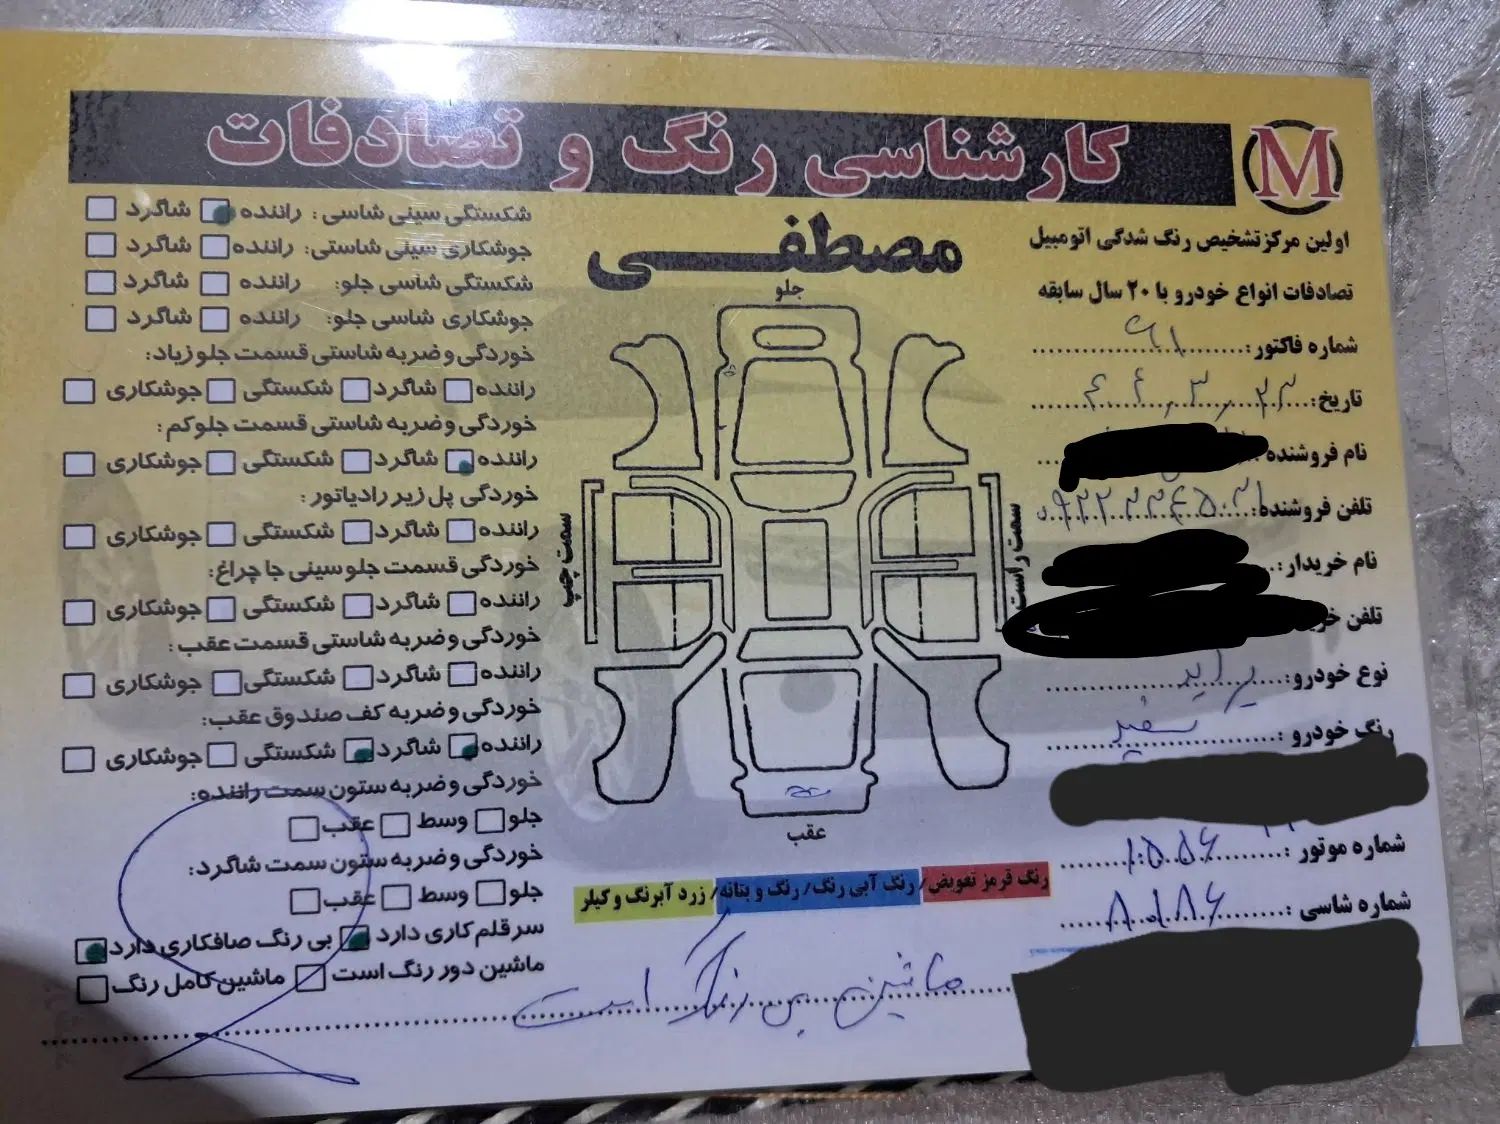 کارشناسی رنگ و تصادفات
M
مصطفی
اولین مرکز تشخیص رنگ شدگی اتومبیل
تصادفات انواع خودرو با ۲۰ سال سابقه
شماره فاکتور:
تاریخ:
نام فروشنده
تلفن فروشنده:
نام خریدار:
تلفن
نوع خودرو: پراید
رنگ خودرو: سفید
شماره موتور:
شماره شاسی:
جلو
سمت چپ
سمت راست
عقب
رنگ قرمز تعویض/ رنگ آبی رنگ/ رنگ و بتانه/ زرد آبرنگ و کیلر
ماشین بی رنگ است
شکستگی سینی شاسی: راننده شاگرد
جوشکاری سینی شاستی: راننده شاگرد
شکستگی شاسی جلو: راننده شاگرد
جوشکاری شاسی جلو: راننده شاگرد
خوردگی و ضربه شاستی قسمت جلو زیاد:
راننده شاگرد شکستگی جوشکاری
خوردگی و ضربه شاستی قسمت جلو کم:
راننده شاگرد شکستگی جوشکاری
خوردگی پل زیر رادیاتور:
راننده شاگرد شکستگی جوشکاری
خوردگی قسمت جلو سینی جا چراغ:
راننده شاگرد شکستگی جوشکاری
خوردگی و ضربه شاستی قسمت عقب:
راننده شاگرد شکستگی جوشکاری
خوردگی و ضربه کف صندوق عقب:
راننده شاگرد شکستگی جوشکاری
خوردگی و ضربه ستون سمت راننده:
جلو وسط عقب
خوردگی و ضربه ستون سمت شاگرد:
جلو وسط عقب
سر قلم کاری دارد بی رنگ صافکاری دارد
ماشین دور رنگ است ماشین کامل رنگ